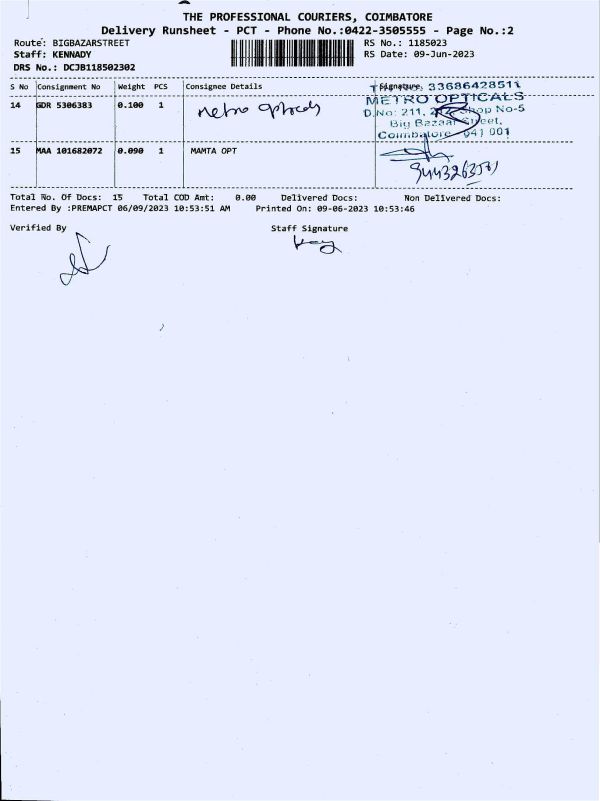 THE PROFESSIONAL COURIERS, COIMBATORE
Delivery Runsheet - PCT - Phone No.:0422-3505555 - Page No.:2
Route: BIGBAZARSTREET RS No.: 1185023
Staff: KENNADY RS Date: 09-Jun-2023
DRS No.: DCJB118502302
S No Consignment No Weight PCS Consignee Details Signature
33686428511
14 GDR 5306383 0.100 1 metro opticals METRO OPTICALS
D.No: 211, Shop No-5
Big Bazaar Street,
Coimbatore 641 001
15 MAA 101682072 0.090 1 MAMTA OPT
Total No. Of Docs: 15 Total COD Amt: 0.00 Delivered Docs: Non Delivered Docs:
Entered By :PREMAPCT 06/09/2023 10:53:51 AM Printed On: 09-06-2023 10:53:46
Verified By Staff Signature